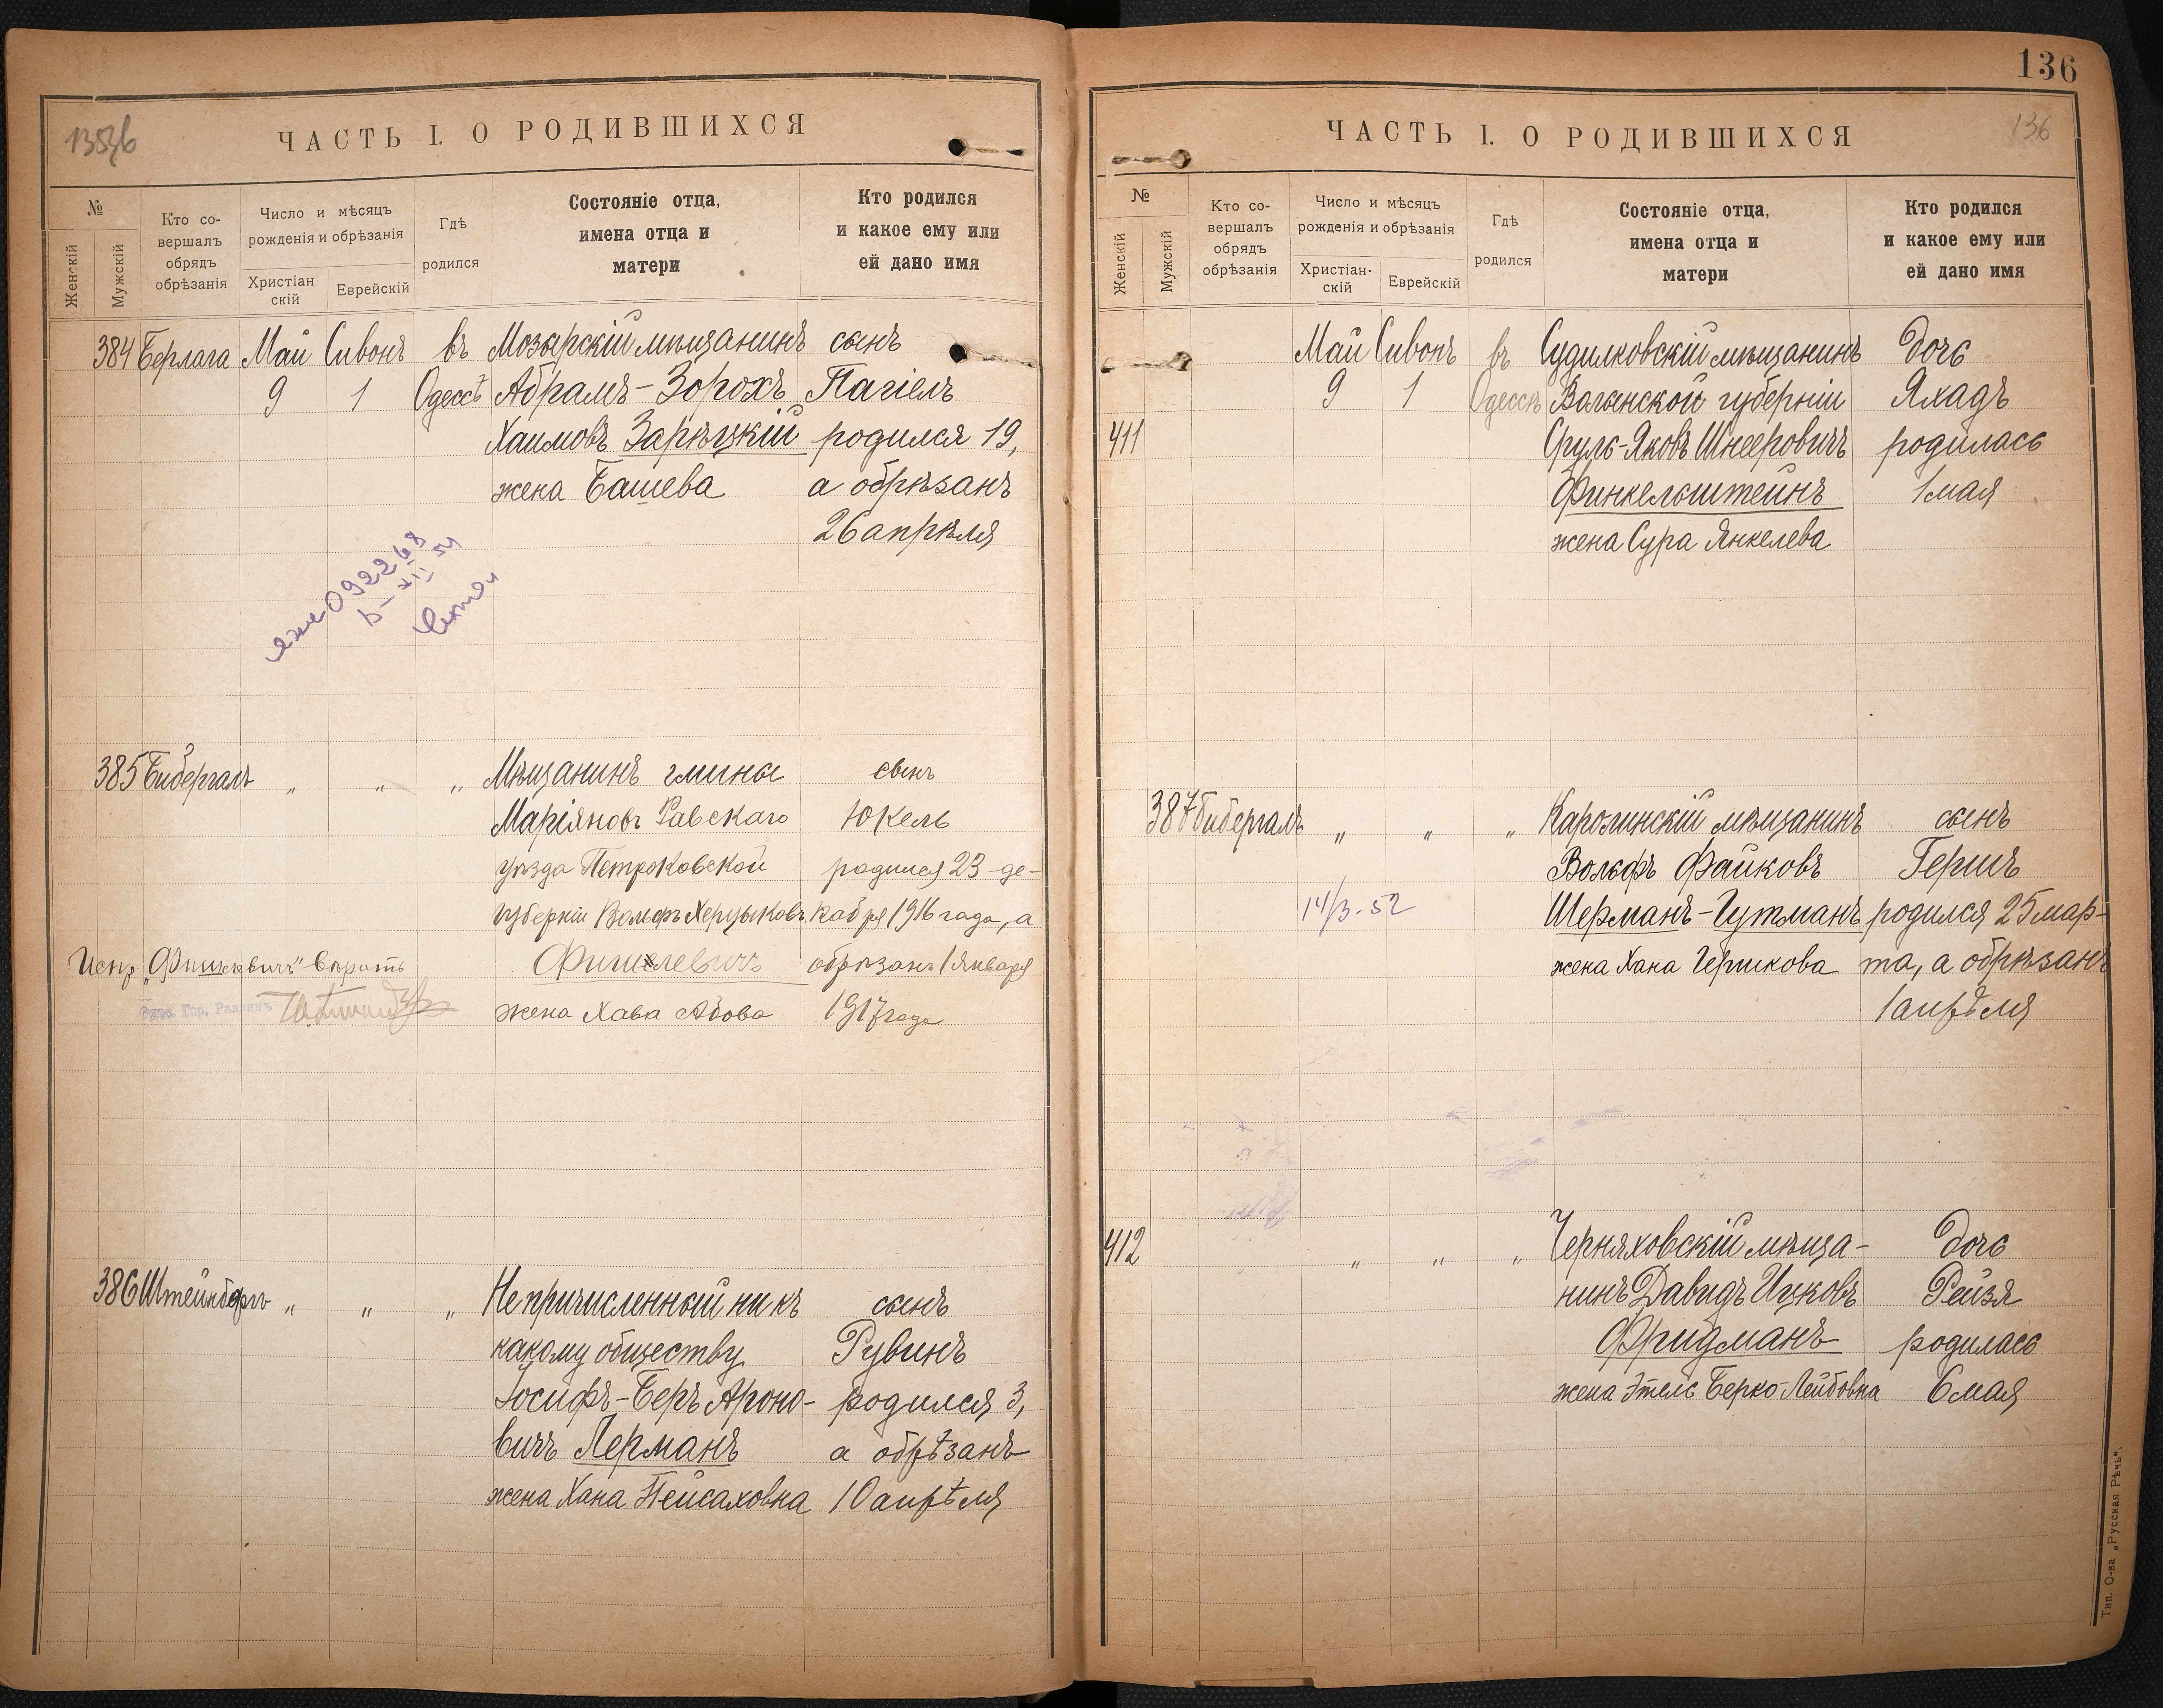 ЧАСТЬ I. О РОДИВШИХСЯ
№
Женскій
Мужскій
Кто со-
вершалъ
обрядъ
обрѣзанія
Число и мѣсяцъ
рожденія и обрѣзанія
Христіан
скій
Еврейскій
Гдѣ
родился
Состояніе отца,
имена отца и
матери
Кто родился
и какое ему или
ей дано имя
384 Берлага Май Сивонъ въ Мозырскій мѣщанинъ сынъ
9 1 Одессѣ Абрамъ-Зорохъ Пагіелъ
Хаимовъ Зарѣцкій родился 19,
жена Башева а обрѣзанъ
26 апрѣля
092268
385 Бибергалъ „ „ „ Мѣщанинъ гмины сынъ
Маріяновъ Равскаго Юкель
уѣзда Петроковской родился 23 де-
губерніи Вольфъ Херцыковъ кабря 1916 года, а
Фишлевичъ обрѣзанъ 1 Января
жена Хава Абова 1917 года
Испр. „Фишлевичъ" вѣрить
Гор. Раввинъ
386 Штейнбергъ „ „ „ Не причисленный ни къ сынъ
какому обществу Рувинъ
Іосифъ-Беръ Ароно- родился 3,
вичъ Лерманъ а обрѣзанъ
жена Хана Пейсаховна 10 апрѣля
136
136
ЧАСТЬ I. О РОДИВШИХСЯ
№
Женскій
Мужскій
Кто со-
вершалъ
обрядъ
обрѣзанія
Число и мѣсяцъ
рожденія и обрѣзанія
Христіан-
скій
Еврейскій
Гдѣ
родился
Состояніе отца,
имена отца и
матери
Кто родился
и какое ему или
ей дано имя
Май Сивонъ въ Судилковскій мѣщанинъ дочь
9 1 Одессѣ Волынской губерніи Яхадъ
411 Сруль-Яковъ Шнееровичъ родилась
Финкельштейнъ 1 мая
жена Сура Янкелева
387 Бибергалъ „ „ „ Каролинскій мѣщанинъ сынъ
Вольфъ Файковъ Гершъ
14/3-52 Шерманъ-Гутманъ родился 25 мар-
жена Хана Гершкова та, а обрѣзанъ
1 апрѣля
412 „ „ „ Черняховскій мѣща- дочь
нинъ Давидъ Ицковъ Рейзя
Фридманъ родилась
жена Этель Берко-Лейбовна 6 мая
Тип. О-ва „Русская Рѣчь".